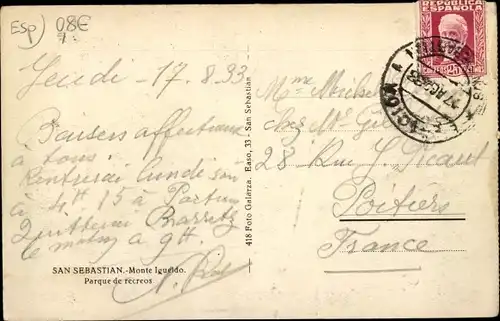 Esp) 08€
Jeudi - 17.8.33
Baisers affectueux
à tous
Rentrerai lundi soir
à 4h 15 à
Quitterai Biarritz
le matin à 9h.
SAN SEBASTIAN.-Monte Igueldo.
Parque de recreos
418 Foto Galarza. Easo, 33 - San Sebastián
REPÚBLICA
ESPAÑOLA
25
Mme
chez Mr
28 Rue J.
Poitiers
France